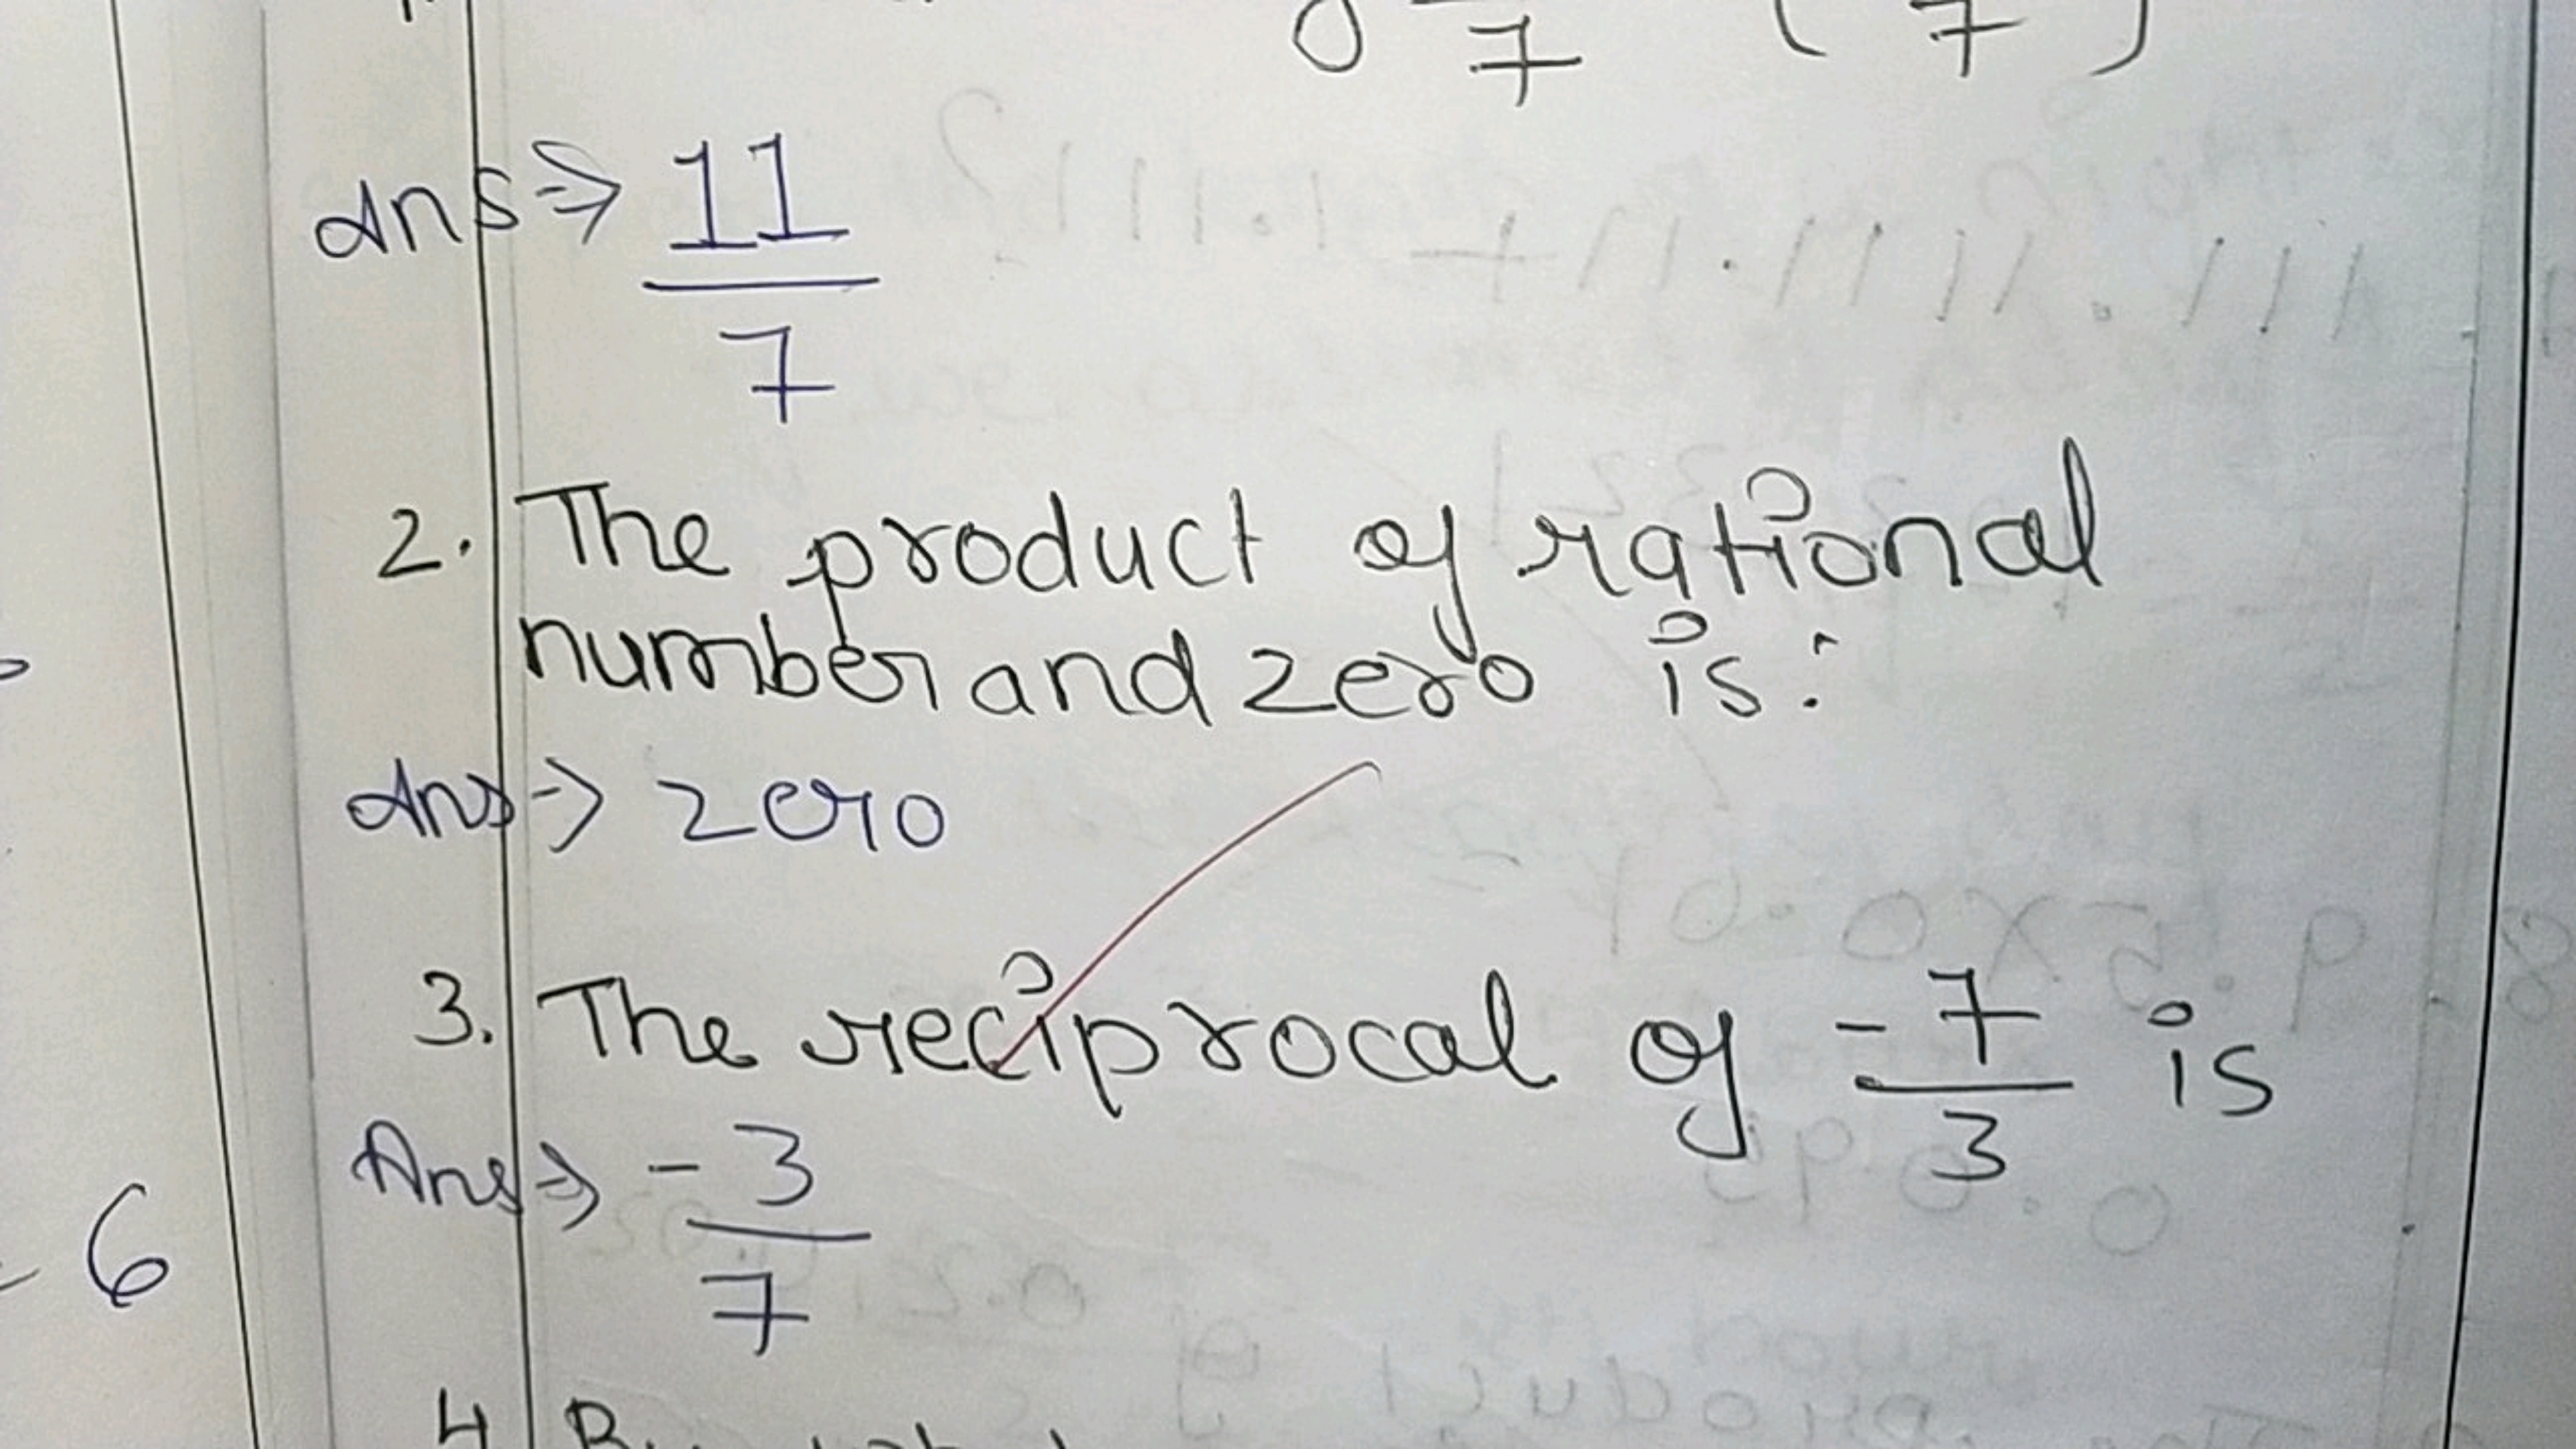 7 ( 7 )
Ans⇒ 11/7
2. The product of rational
number and zero is:
Ans→ zero
3. The reciprocal of -7/3 is
Ans⇒ -3/7
6
4